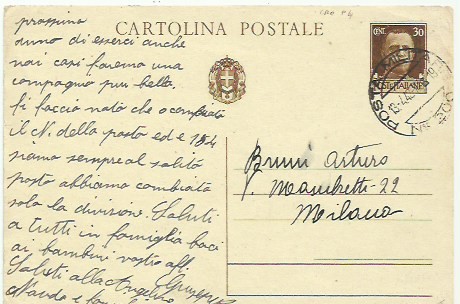 prossimo
anno di esserci anche
noi così faremo una
compagno più bella.
Ti faccio noto che o cambiato
il N. della posta ed e 154
siamo sempre al solito
posto abbiamo cambiato
solo la division. Saluti
a tutti in famiglia baci
ai bambini vostro aff.
Giuseppe
Saluti alla
CARTOLINA POSTALE
CENT. 30
POSTE ITALIANE
POSTA MILITARE
Bruni Arturo
V. Manchetti-22
Milano